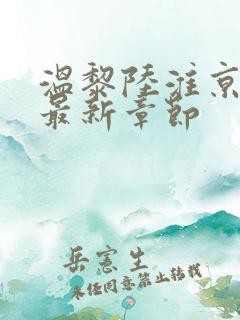 温黎陆淮京
最新章节
岳宪生
未经同意禁止转载